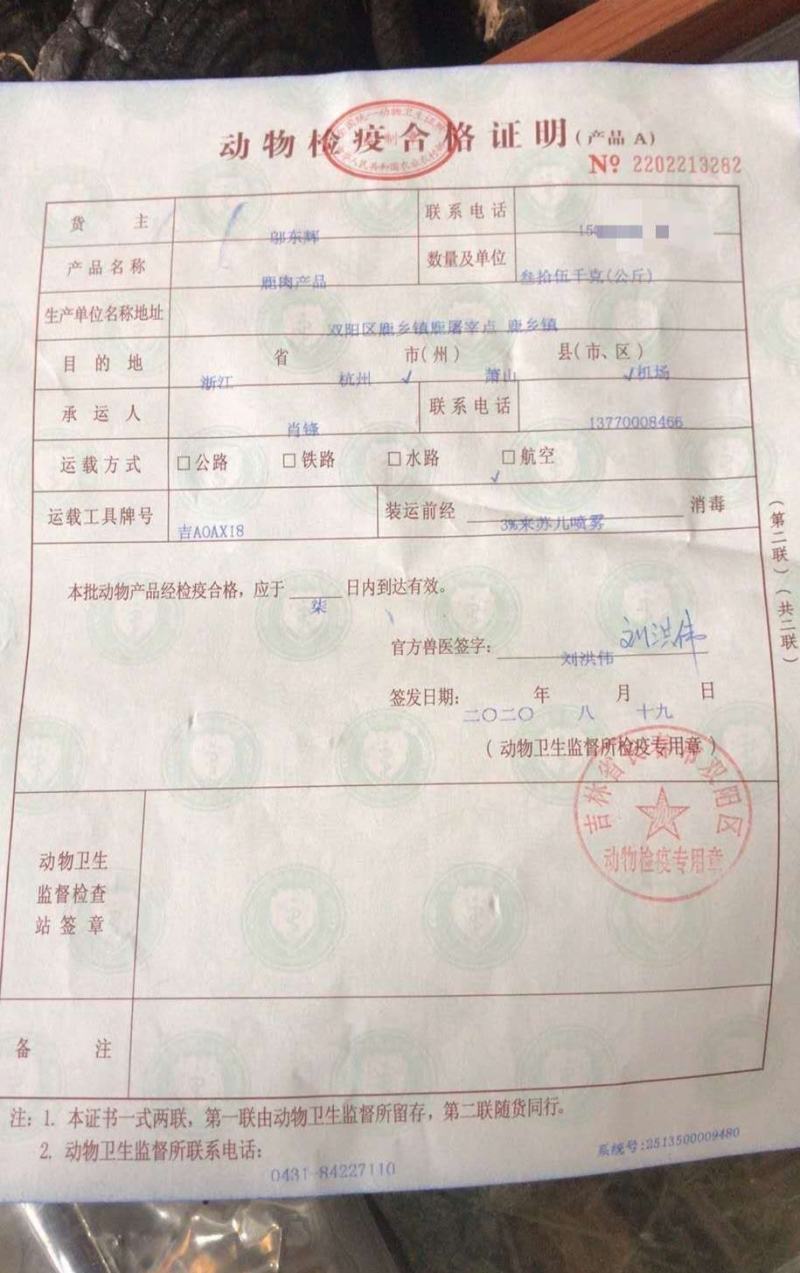 动物检疫合格证明(产品 A)
№ 2202213282
货主 邬东辉 联系电话 15
产品名称 鹿肉产品 数量及单位 叁拾伍千克(公斤)
生产单位名称地址 双阳区鹿乡镇鹿屠宰点 鹿乡镇
目的地 浙江 省 杭州 市(州) ✓ 萧山 县(市、区) ✓机场
承运人 肖锋 联系电话 13770008466
运载方式 □公路 □铁路 □水路 ✓ □航空
运载工具牌号 吉A0AX18 装运前经 3%来苏儿喷雾 消毒
本批动物产品经检疫合格,应于 柒 日内到达有效。
官方兽医签字: 刘洪伟 刘洪伟
签发日期: 二〇二〇 年 八 月 十九 日
(动物卫生监督所检疫专用章)
吉林省长春市双阳区
动物检疫专用章
动物卫生
监督检查
站签章
备注
(第二联)(共二联)
注: 1. 本证书一式两联,第一联由动物卫生监督所留存,第二联随货同行。
2. 动物卫生监督所联系电话: 0431-84227110
系统号:2513500009480